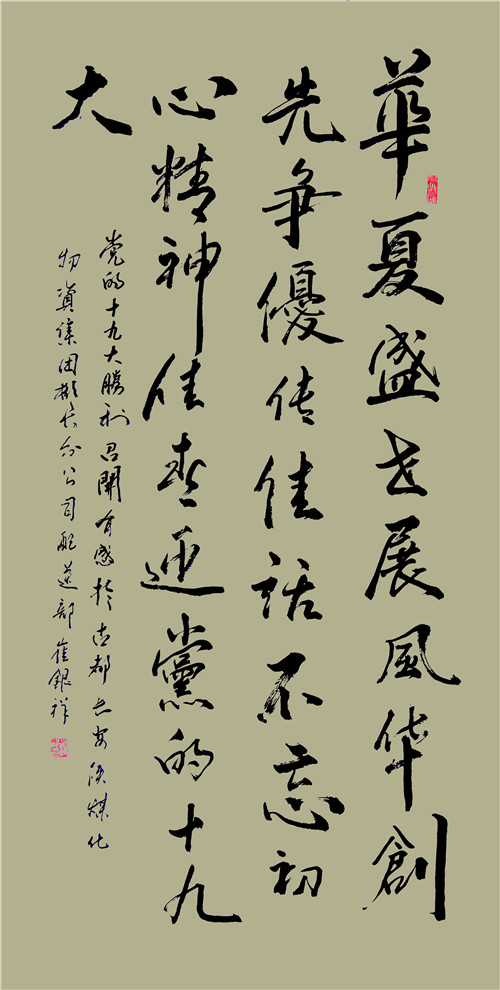 華夏盛世展風华創
先争優传佳話不忘初
心精神佳喜迎黨的十九
大
党的十九大勝利召開有感於古都长安陕煤化
物資集团彬长分公司配送部崔銀祥